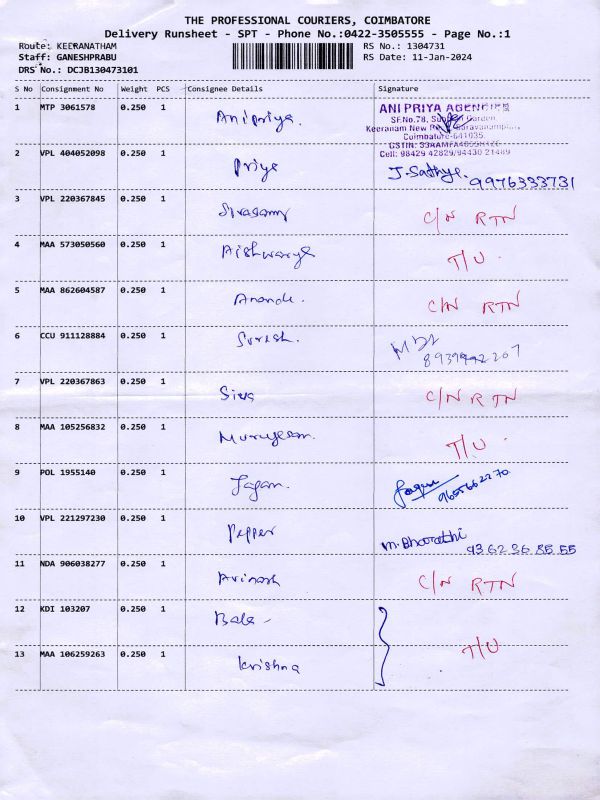 THE PROFESSIONAL COURIERS, COIMBATORE
Delivery Runsheet - SPT - Phone No.:0422-3505555 - Page No.:1
Route: KEERANATHAM RS No.: 1304731
Staff: GANESHPRABU RS Date: 11-Jan-2024
DRS No.: DCJB130473101
S No Consignment No Weight PCS Consignee Details Signature
1 MTP 3061578 0.250 1 Anipriya. ANI PRIYA AGENCIES
SF.No.78, Garden,
Keeranam New
Coimbatore-641035.
GSTIN:
Cell: 98429 42829/94430 21489
2 VPL 404052098 0.250 1 Priya J. Sathya. 9976333731
3 VPL 220367845 0.250 1 Sivasamy C/N RTN
4 MAA 573050560 0.250 1 Aishwarya T/U.
5 MAA 862604587 0.250 1 Ananda. C/N RTN
6 CCU 911128884 0.250 1 Suresh.
7 VPL 220367863 0.250 1 Siva C/N RTN
8 MAA 105256832 0.250 1 Murugesan. T/U.
9 POL 1955140 0.250 1 Jagan. 9655662270
10 VPL 221297230 0.250 1 Pepper M. Bharathi 93 62 36 85 55
11 NDA 906038277 0.250 1 Avinash C/N RTN
12 KDI 103207 0.250 1 Bala -
T/U
13 MAA 106259263 0.250 1 Krishna